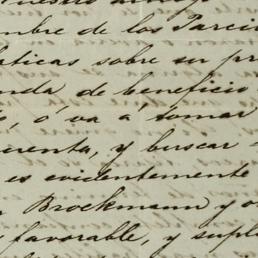 nuestro
mbre de los Parcia
ticas sobre su pr
nda de beneficio
o, ó va á tomar
uenta, y buscar
es evidentemente
Brockmann y o
favorable, y supl